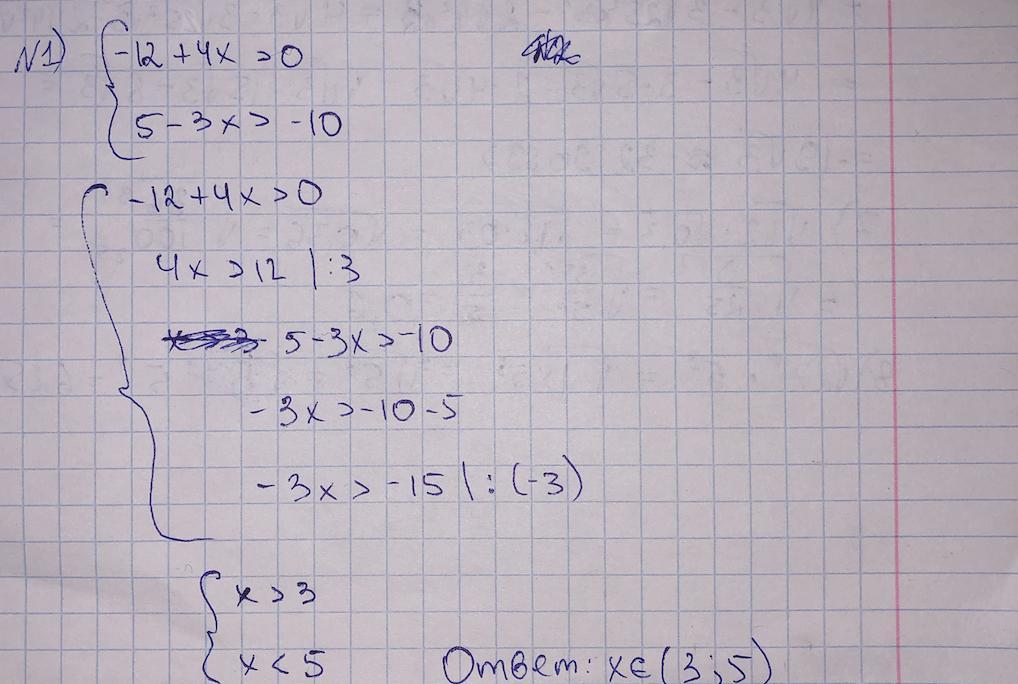 N1) { -12 + 4x > 0
5 - 3x > -10
{ -12 + 4x > 0
4x > 12 | : 3
5 - 3x > -10
-3x > -10 - 5
-3x > -15 | : (-3)
{ x > 3
x < 5 Ответ: x ∈ (3 ; 5)